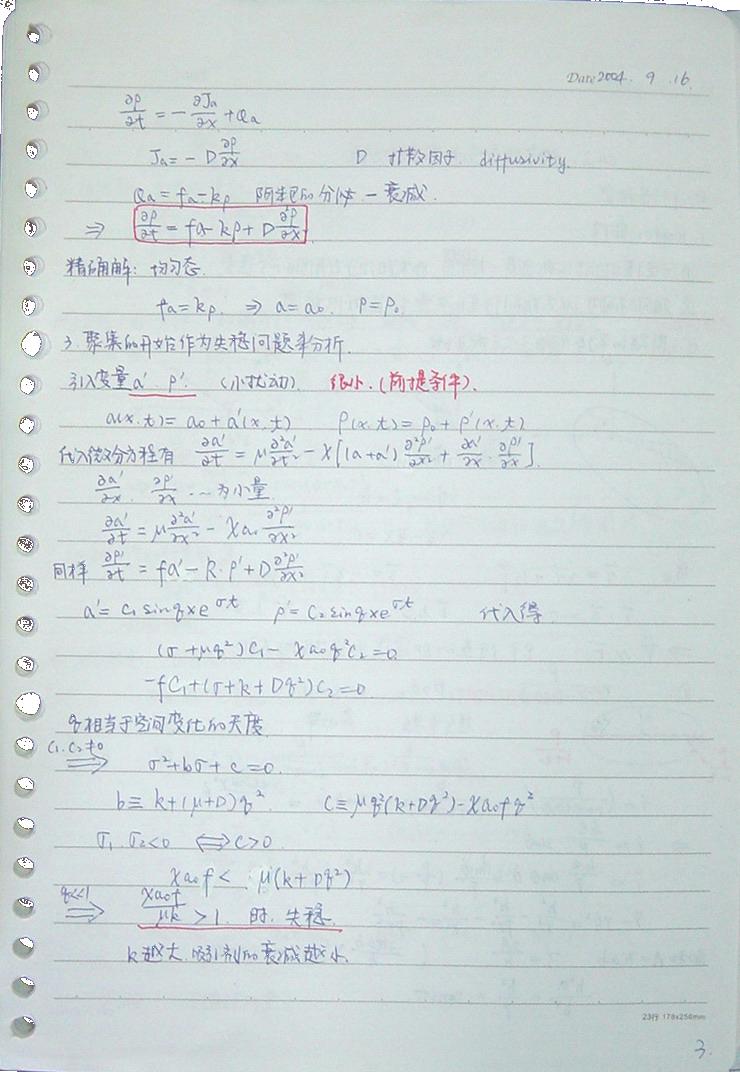 Date 2004. 9. 16.
∂ρ/∂t = -∂Ja/∂x + Qa
Ja = - D ∂ρ/∂x D 扩散因子 diffusivity.
Qa = fa - kρ 的分泌 - 衰减.
⇒ ∂ρ/∂t = fa - kρ + D ∂²ρ/∂x
精确解: 均匀态.
fa = kρ. ⇒ a = a₀. ρ = ρ₀.
3. 聚集的开始作为失稳问题来分析.
引入变量 a'. ρ'. (小扰动) 很小. (前提条件).
a(x.t) = a₀ + a'(x.t) ρ(x.t) = ρ₀ + ρ'(x.t)
代入微分方程有 ∂a'/∂t = μ ∂²a'/∂t² - χ[(a+a') ∂²ρ'/∂x² + ∂a'/∂x · ∂ρ'/∂x].
∂a'/∂x . ∂ρ'/∂x . … 为小量.
∂a'/∂t = μ ∂²a'/∂x² - χa₀ ∂²ρ'/∂x²
同样 ∂ρ'/∂t = fa' - k·ρ' + D ∂²ρ'/∂x²
a' = c₁ sin qx e^σt ρ' = c₂ sin qx e^σt 代入得
(σ + μq²)C₁ - χa₀q²C₂ = 0.
-fC₁ + (σ + k + Dq²)C₂ = 0
q 相当于空间变化的尺度.
C₁.C₂≠0
⇒ σ² + bσ + c = 0.
b ≡ k + (μ+D)q². c ≡ μq²(k+Dq²) - χa₀fq²
σ₁. σ₂<0 ⟺ c>0.
χa₀f < μ(k + Dq²)
q≪1
⇒ χa₀f/μk > 1. 时. 失稳.
k越大. 吸引剂的衰减越小.
23行 178x256mm
3.